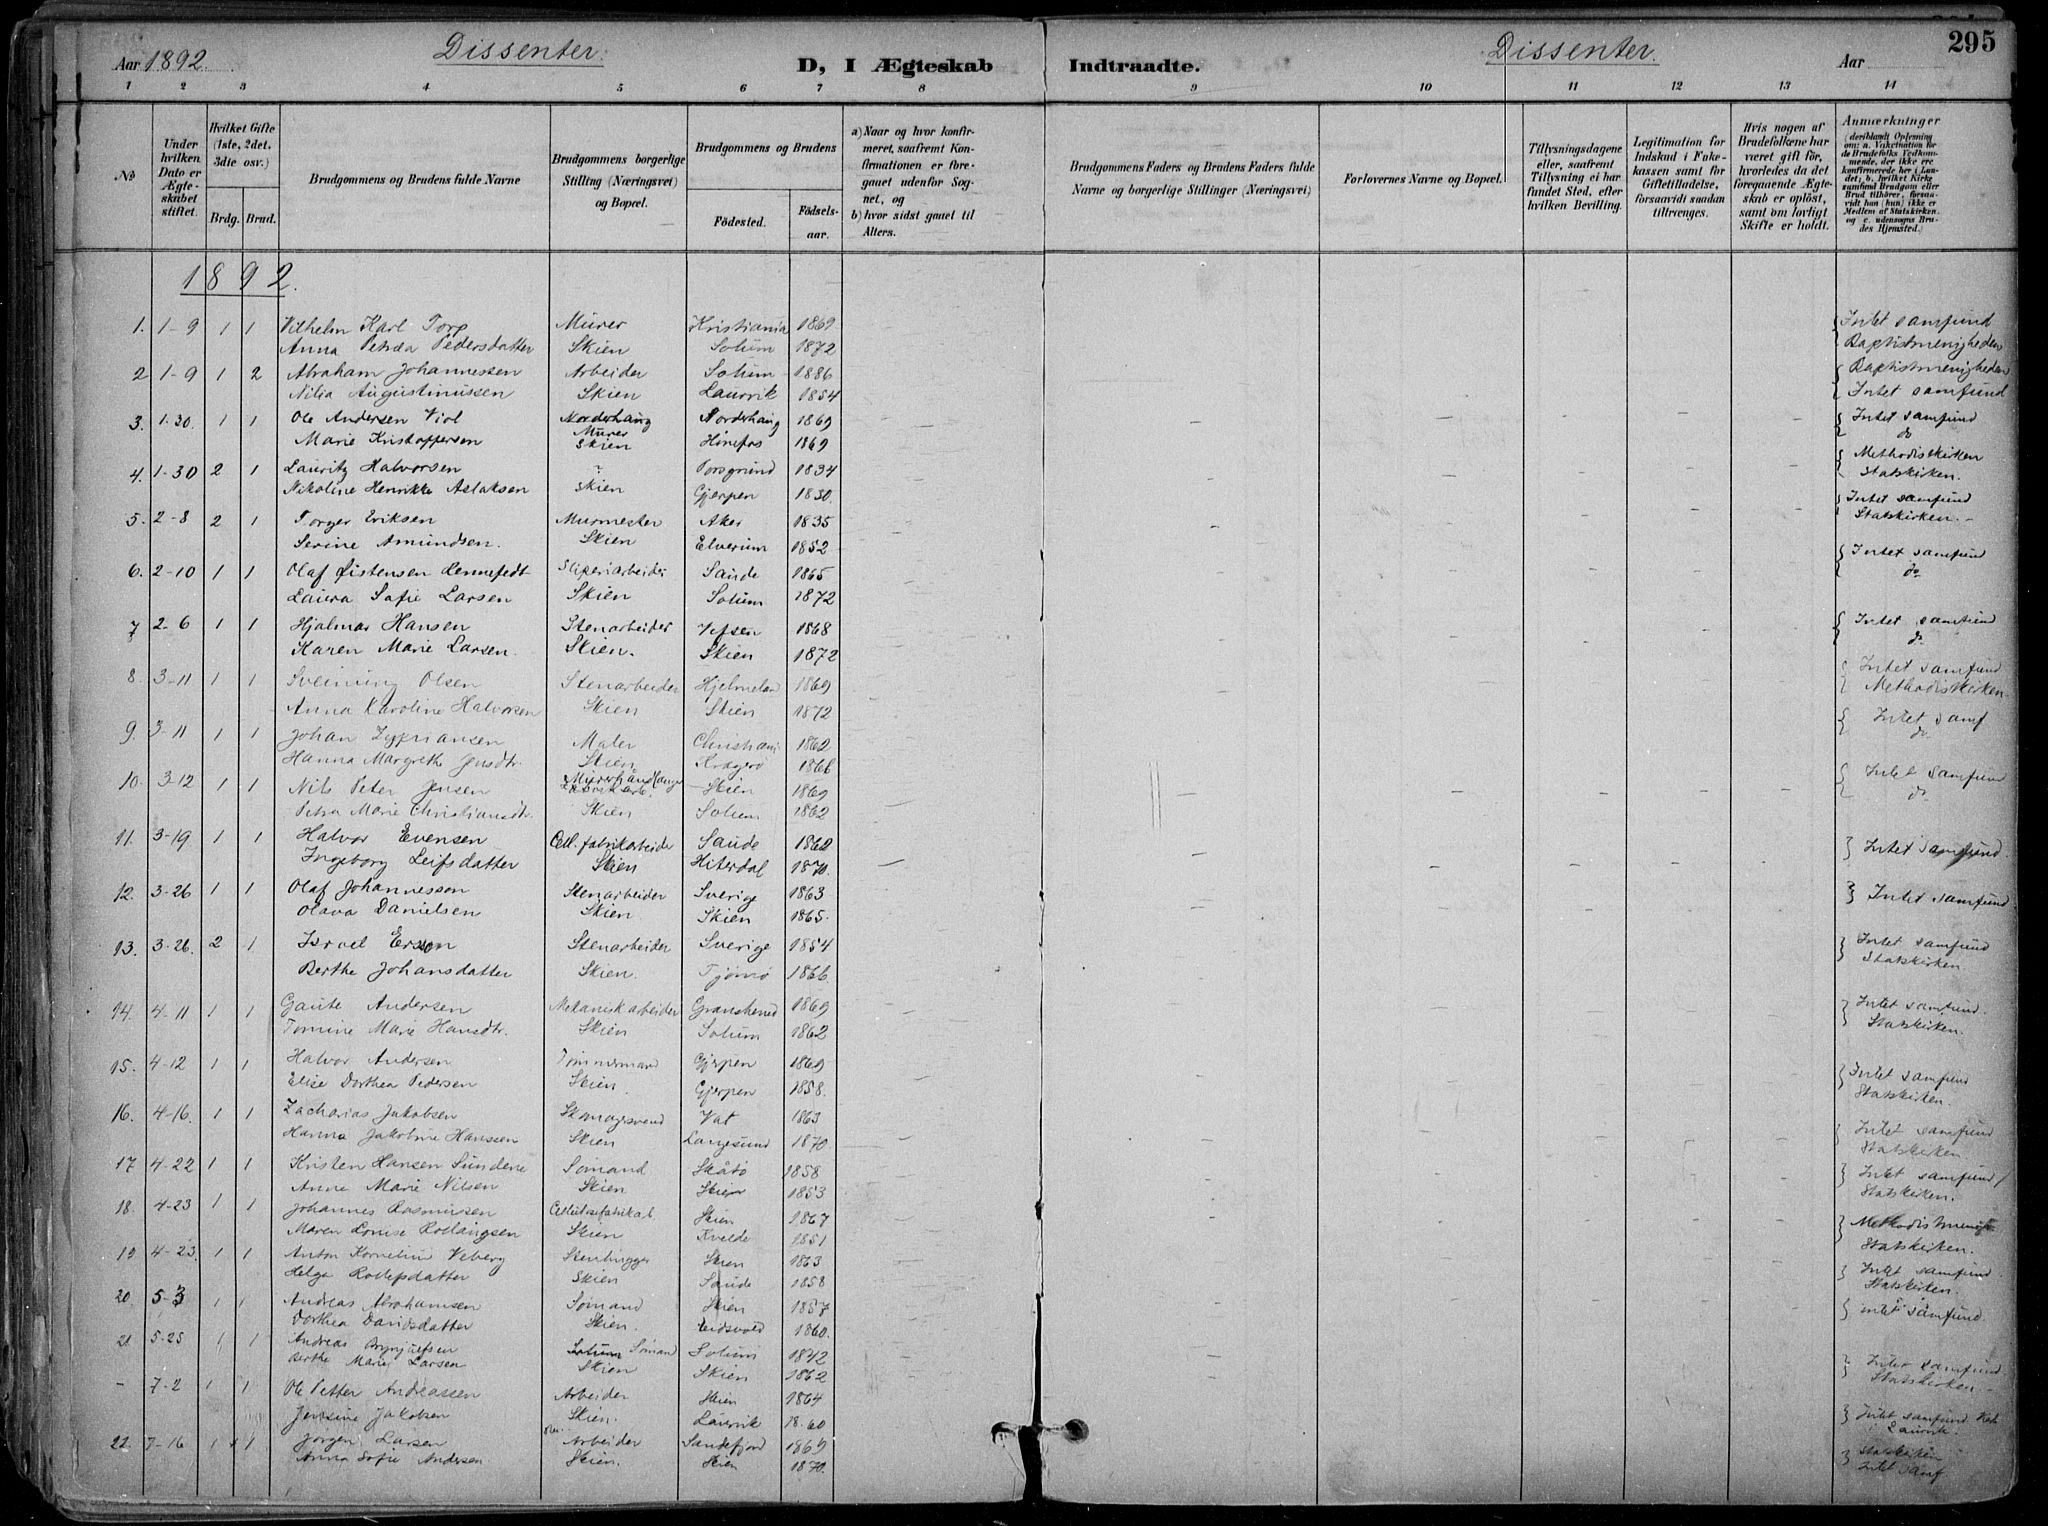 295
Aar 1892.
Dissenter.
D, I Ægteskab
Indtraadte.
Dissenter.
Aar
1 2 3 4 5 6 7 8 9 10 11 12 13 14
No
Under hvilken Dato er Ægteskabet stiftet.
Hvilket Gifte (1ste, 2det, 3die osv.)
Brdg. Brud.
Brudgommens og Brudens fulde Navne
Brudgommens borgerlige Stilling (Næringsvei) og Bopæl.
Brudgommens og Brudens
Fødested.
Fødselsaar.
a) Naar og hvor konfirmeret, saafremt Konfirmationen er foregaaet udenfor Sognet, og
b) hvor sidst gaaet til Alters.
Brudgommens Faders og Brudens Faders fulde Navne og borgerlige Stillinger (Næringsvei)
Forlovernes Navne og Bopæl.
Tillysningsdagene eller, saafremt Tillysning ei har fundet Sted, efter hvilken Bevilling.
Legitimation for Indskud i Enkekassen samt for Giftetilladelse, forsaavidt saadan tiltrænges.
Hvis nogen af Brudefolkene har været gift før, hvorledes da det foregaaende Ægteskab er opløst, samt om lovligt Skifte er holdt.
Anmærkninger (deriblandt Oplysning om: a. Vakcination for de Brudefolks Vedkommende, der ikke ere konfirmerede her i Landet; b. hvilket Kirkesamfund Brudgom eller Brud tilhører, forsaavidt han (hun) ikke er Medlem af Statskirken, og c. udensogns Brudes Hjemsted.)
1892.
1. 1-9 1 1 Vilhelm Karl Torp Murer Kristiania 1869 Intet samfund
Anna Petræa Pedersdatter Skien Solum 1872 Baptistmenigheden
2 1-9 1 2 Abraham Johannessen Arbeider Solum 1886 Baptistmenigheden
Nilia Augustinussen Skien Laurvik 1854 Intet samfund
3. 1-30. 1 1 Ole Andersen Viol Norderhaug Norderhaug 1869 Intet samfund
Murer
Marie Kristoffersen Skien Hønefos 1869 do
4. 1-30 2 1 Lauritz Halvorsen Porsgrund 1834 Methodistkirken
Nikoline Henrikke Aslaksen Skien Gjerpen 1830. Statskirken.
5. 2-8 2 1 Torger Eriksen Murmester Aker 1835 Intet samfund
Serine Amundsen. Skien Elverum 1852 Statskirken.
6. 2-10 1 1 Olaf Østensen Sliperiarbeider Saude 1865 Intet samfund
Laura Sofie Larsen Skien Solum 1872 do
7 2-6 1 1 Hjalmar Hansen Stenarbeider Vefsen 1868 Intet samfund
Karen Marie Larsen. Skien. Skien 1872 do
8. 3-11 1 1 Sveinung Olsen Stenarbeider Hjelmeland 1869 Intet samfund
Anna Karoline Halvorsen Skien Skien 1872 Methodistkirken
9. 3-11 1 1 Johan Zyprianssen Maler Christiani 1862 Intet samf
Hanna Margrethe Jensdtr. Skien Kragerø 1866 do
10. 3-12 1 1 Nils Peter Jensen Skien 1869 Intet samfund
Petra Marie Christiansdtr. Skien Solum 1862 do
11. 3-19 1 1 Halvor Evensen Cell. fabrikarbeider Saude 1862 Intet samfund.
Ingeborg Leifsdatter Skien Hiterdal 1870.
12. 3-26 1 1 Olaf Johannesson Stenarbeider Sverige 1863 Intet samfund
Olava Danielsen Skien Skien 1865.
13. 3-26. 2 1 Israel Ersson Stenarbeider Sverige 1854 Intet samfund
Berthe Johansdatter Skien. Tjømø 1866 Statskirken
14. 4-11 1 1 Gaute Andersen Mekanisk arbeider Granshered 1869 Intet samfund.
Tomine Marie Hansdtr. Skien Solum 1862 Statskirken.
15. 4-12 1 1 Halvor Andersen Tømmermand Gjerpen 1869 Intet samfund
Elise Dorthea Pedersen Skien Gjerpen 1858. Statskirken.
16. 4-16. 1 1 Zacharias Jakobsen Skomagersvend Vat 1863 Intet samfund
Hanna Jakobine Hanssen Skien Langesund 1870. Statskirken
17 4-22 1 1 Kristen Hansen Sundene Sømand Skåtø 1858 Intet samfund
Anne Marie Nilsen Skien Skien 1853 Statskirken.
18. 4-23 1 1 Johannes Rasmussen Cellulosefabrikarb Skien 1867 Methodistmenigh
Maren Lovise Rollaugsen Skien Kvelde 1851 Statskirken.
19 4-23. 1 1 Anton Kornelius Veberg Stenhugger Skien 1863 Intet samfund.
Helga Rollefsdatter Skien Saude 1858 Statskirken.
20. 5-3 1 1 Andreas Abrahamsen Sømand Skien 1857 intet samfund.
Dorthea Davidsdatter Skien. Eidsvold 1860.
21 5-25 1 1 Andreas Brynjulfsen Solum Sømand Solum 1842 Intet samfund
Berthe Marie Larsen Skien Skien 1862 Statskirken
- 7-2 1 1 Ole Petter Andreassen Arbeider Skien 1864 Intet samfund.
Jensine Jakobsen Skien. Laurvik 1860 Laurvik
22. 7-16 1 1 Jørgen Larsen Arbeider Sandefjord 1869 Statskirken
Anna Sofie Andersen Skien. Skien 1870. Intet samf